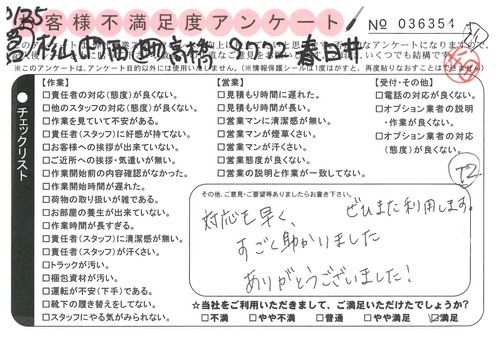 お客様不満足度アンケート
No 036354
※このアンケートは、アンケート目的以外には使用いたしません。(※情報保護シールは1度はがすと、再度貼りなおすことはできません。)
チェックリスト
【作業】
□責任者の対応(態度)が良くない。
□他のスタッフの対応(態度)が良くない。
□作業を見ていて不安がある。
□責任者(スタッフ)に好感が持てない。
□お客様への挨拶が出来ていない。
□ご近所への挨拶・気遣いが無い。
□作業開始前の内容確認がなかった。
□作業開始時間が遅れた。
□荷物の取り扱いが雑である。
□お部屋の養生が出来ていない。
□作業時間が長すぎる。
□責任者(スタッフ)に清潔感が無い。
□責任者(スタッフ)が汗くさい。
□トラックが汚い。
□梱包資材が汚い。
□運転が不安(下手)である。
□靴下の履き替えをしてない。
□スタッフにやる気が感じられない。
【営業】
□見積もり時間に遅れた。
□見積もり時間が長い。
□営業マンに清潔感が無い。
□営業マンが煙草くさい。
□営業マンが汗くさい。
□営業態度が良くない。
□営業の説明と作業が一致してない。
【受付・その他】
□電話の対応が良くない。
□オプション業者の説明・作業が良くない。
□オプション業者の対応(態度)が良くない。
その他、ご意見・ご要望等ありましたらお書き下さい。
対応も早く、
すごく助かりました
ありがとうございました!
ぜひまた利用します。
☆当社をご利用いただきまして、ご満足いただけたでしょうか?
□不満 □やや不満 □普通 □やや満足 ☑満足